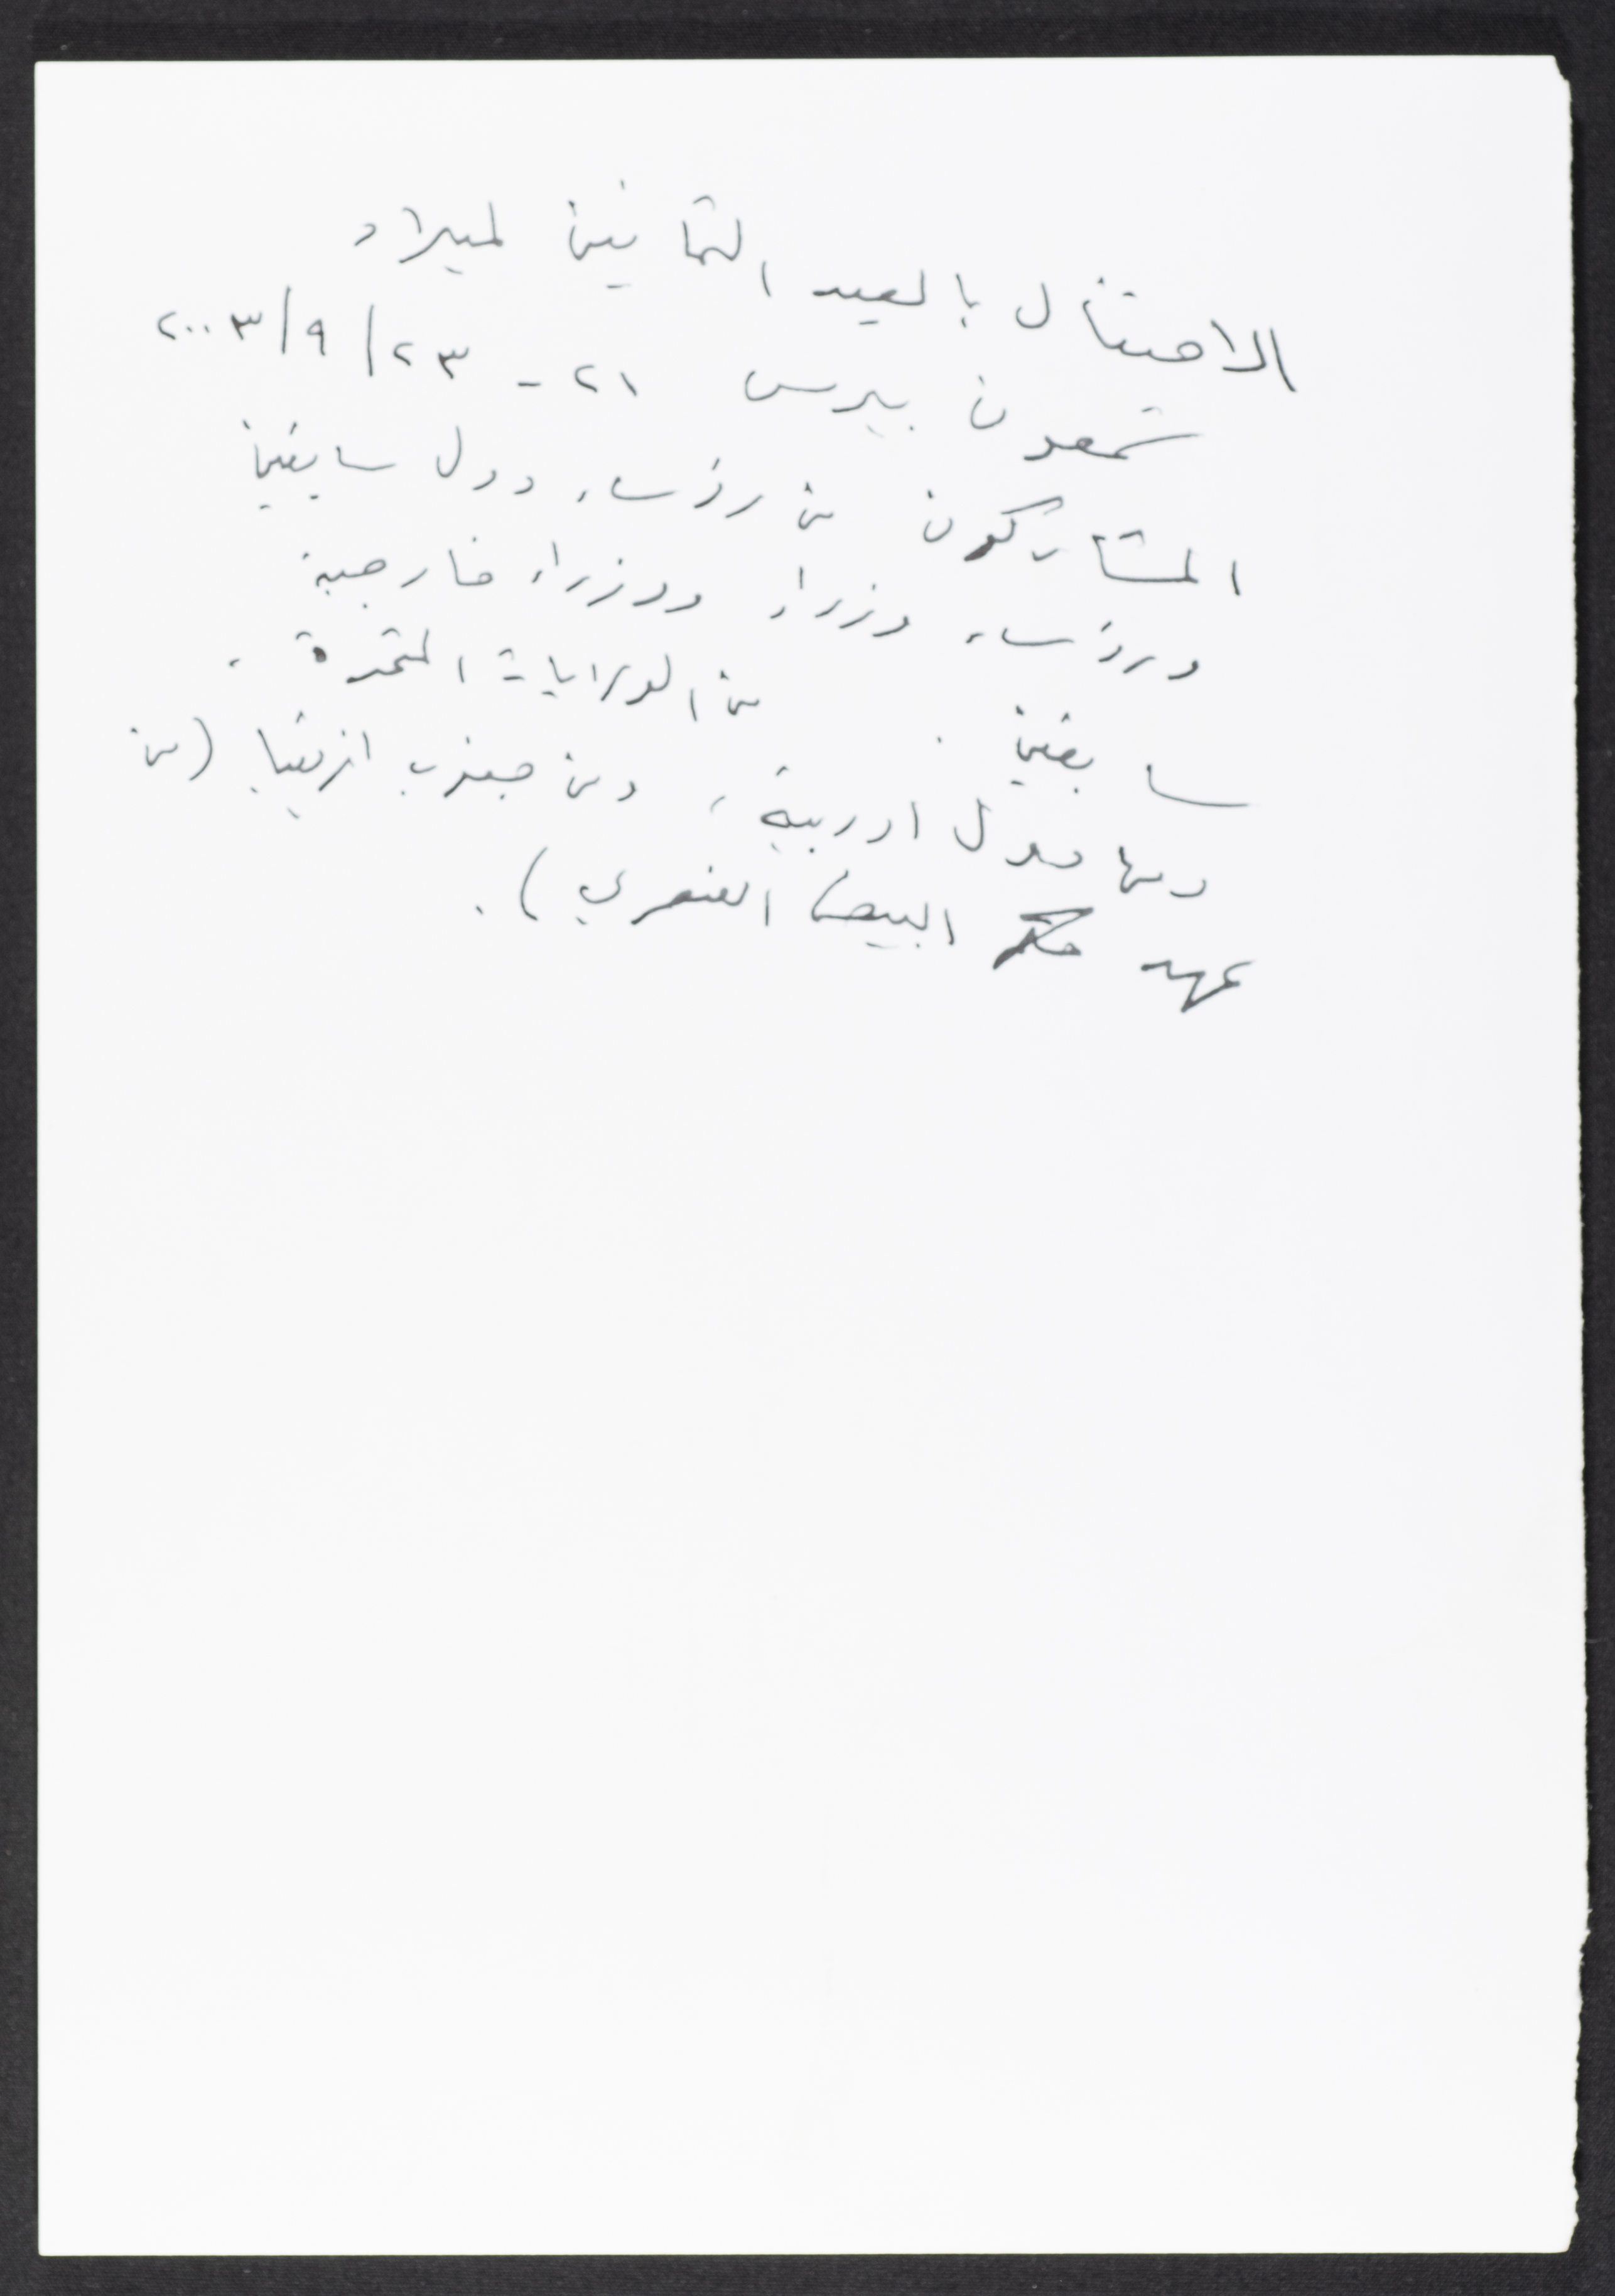 الاحتفال بالعيد الثمانين لميلاد
شمعون بيرس ٢١ - ٢٣ / ٩ / ٢٠٠٣
المشاركون من رؤساء دول سابقين
ورؤساء وزراء ووزراء خارجية
سابقين . من الولايات المتحدة ،
ومن دول اوربية ، ومن جنوب افريقيا (من
عهد حكم البيض العنصري ) .